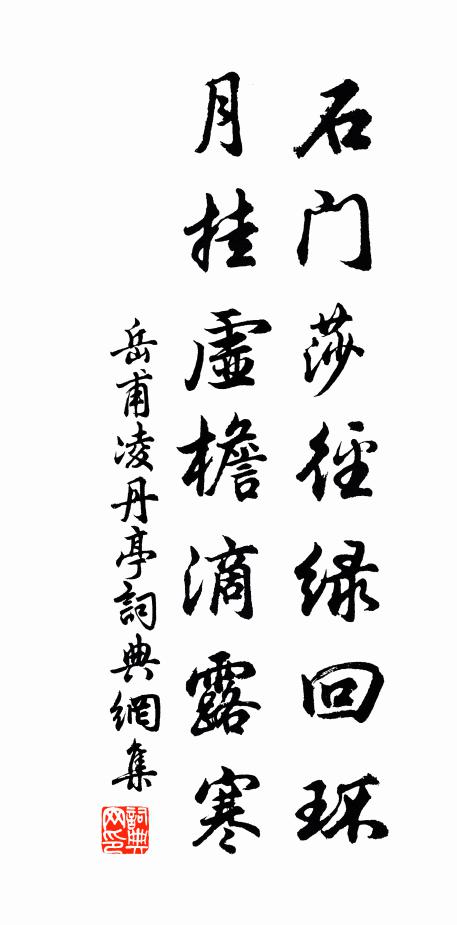 石门莎徑绿回环
月挂虚檐滴露寒
岳甫凌丹亭詞典網集
詞典网印